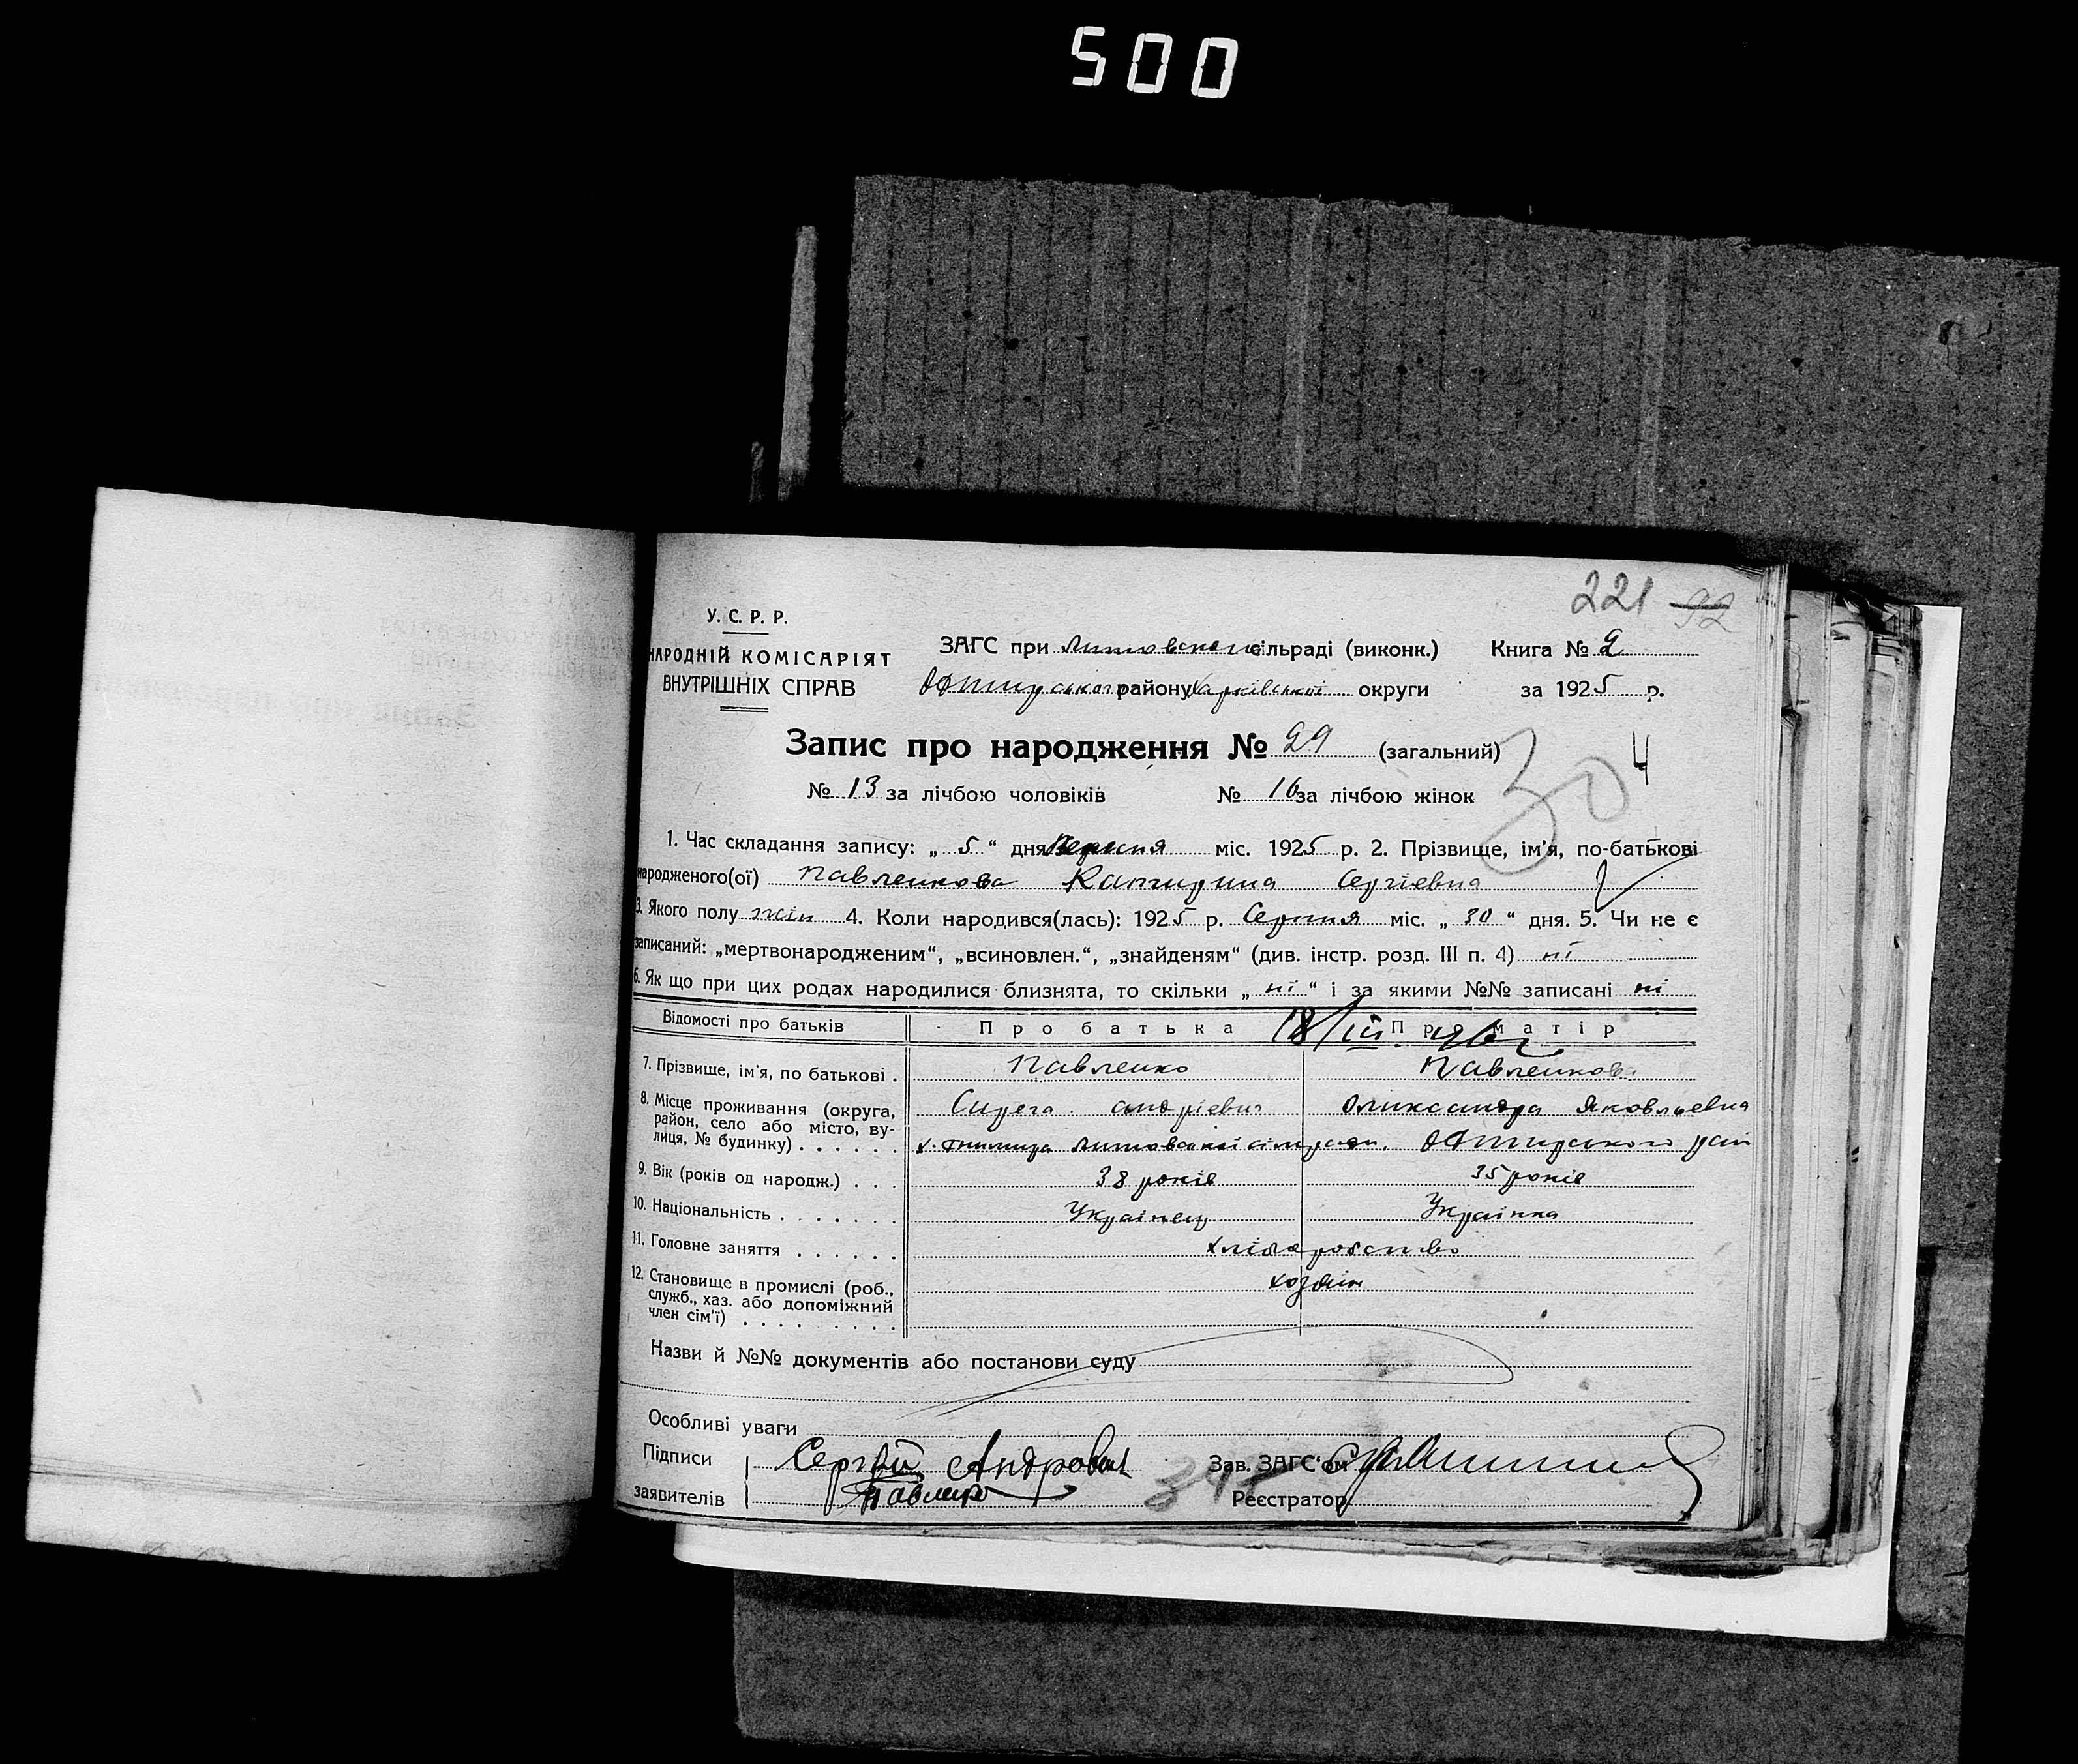 500
221 92
У. С. Р. Р.
НАРОДНІЙ КОМІСАРІЯТ
ВНУТРІШНІХ СПРАВ
ЗАГС при Литовської сільраді (виконк.) Книга № 2
району Харківської округи за 1925 р.
Запис про народження № 29 (загальний)
30 4
№ 13 за лічбою чоловіків № 16 за лічбою жінок
1. Час складання запису: „ 5 “ дня Вересня міс. 1925 р. 2. Прізвище, ім'я, по-батькові
народженого(ої) Павленкова Катирина Сергіевна
3. Якого полу жін 4. Коли народився(лась): 1925 р. Серпня міс. „ 30 “ дня. 5. Чи не є
записаний: „мертвонародженим“, „всиновлен.“, „знайденям“ (див. інстр. розд. III п. 4) ні
6. Як що при цих родах народилися близнята, то скільки „ ні “ і за якими №№ записані ні
Відомості про батьків Про батька Про матір
18/III
7. Прізвище, ім'я, по батькові . Павленко Павленкова
8. Місце проживання (округа, район, село або місто, вулиця, № будинку) . . . . . . Сирега андріевич Олександра Яковлевна
х. Гнилица Литовської сільради, Охтирського рай
9. Вік (років од народж.) . . . 38 років 35 років
10. Національність . . . . . . . Українец Українка
11. Головне заняття . . . . . . хліборобство
12. Становище в промислі (роб., служб., хаз. або допоміжний член сім'ї) . . . . . . . . . хозяін
Назви й №№ документів або постанови суду
Особливі уваги
Підписи Сергій Андрович Зав. ЗАГС'ом
заявителів Павленко Реєстратор